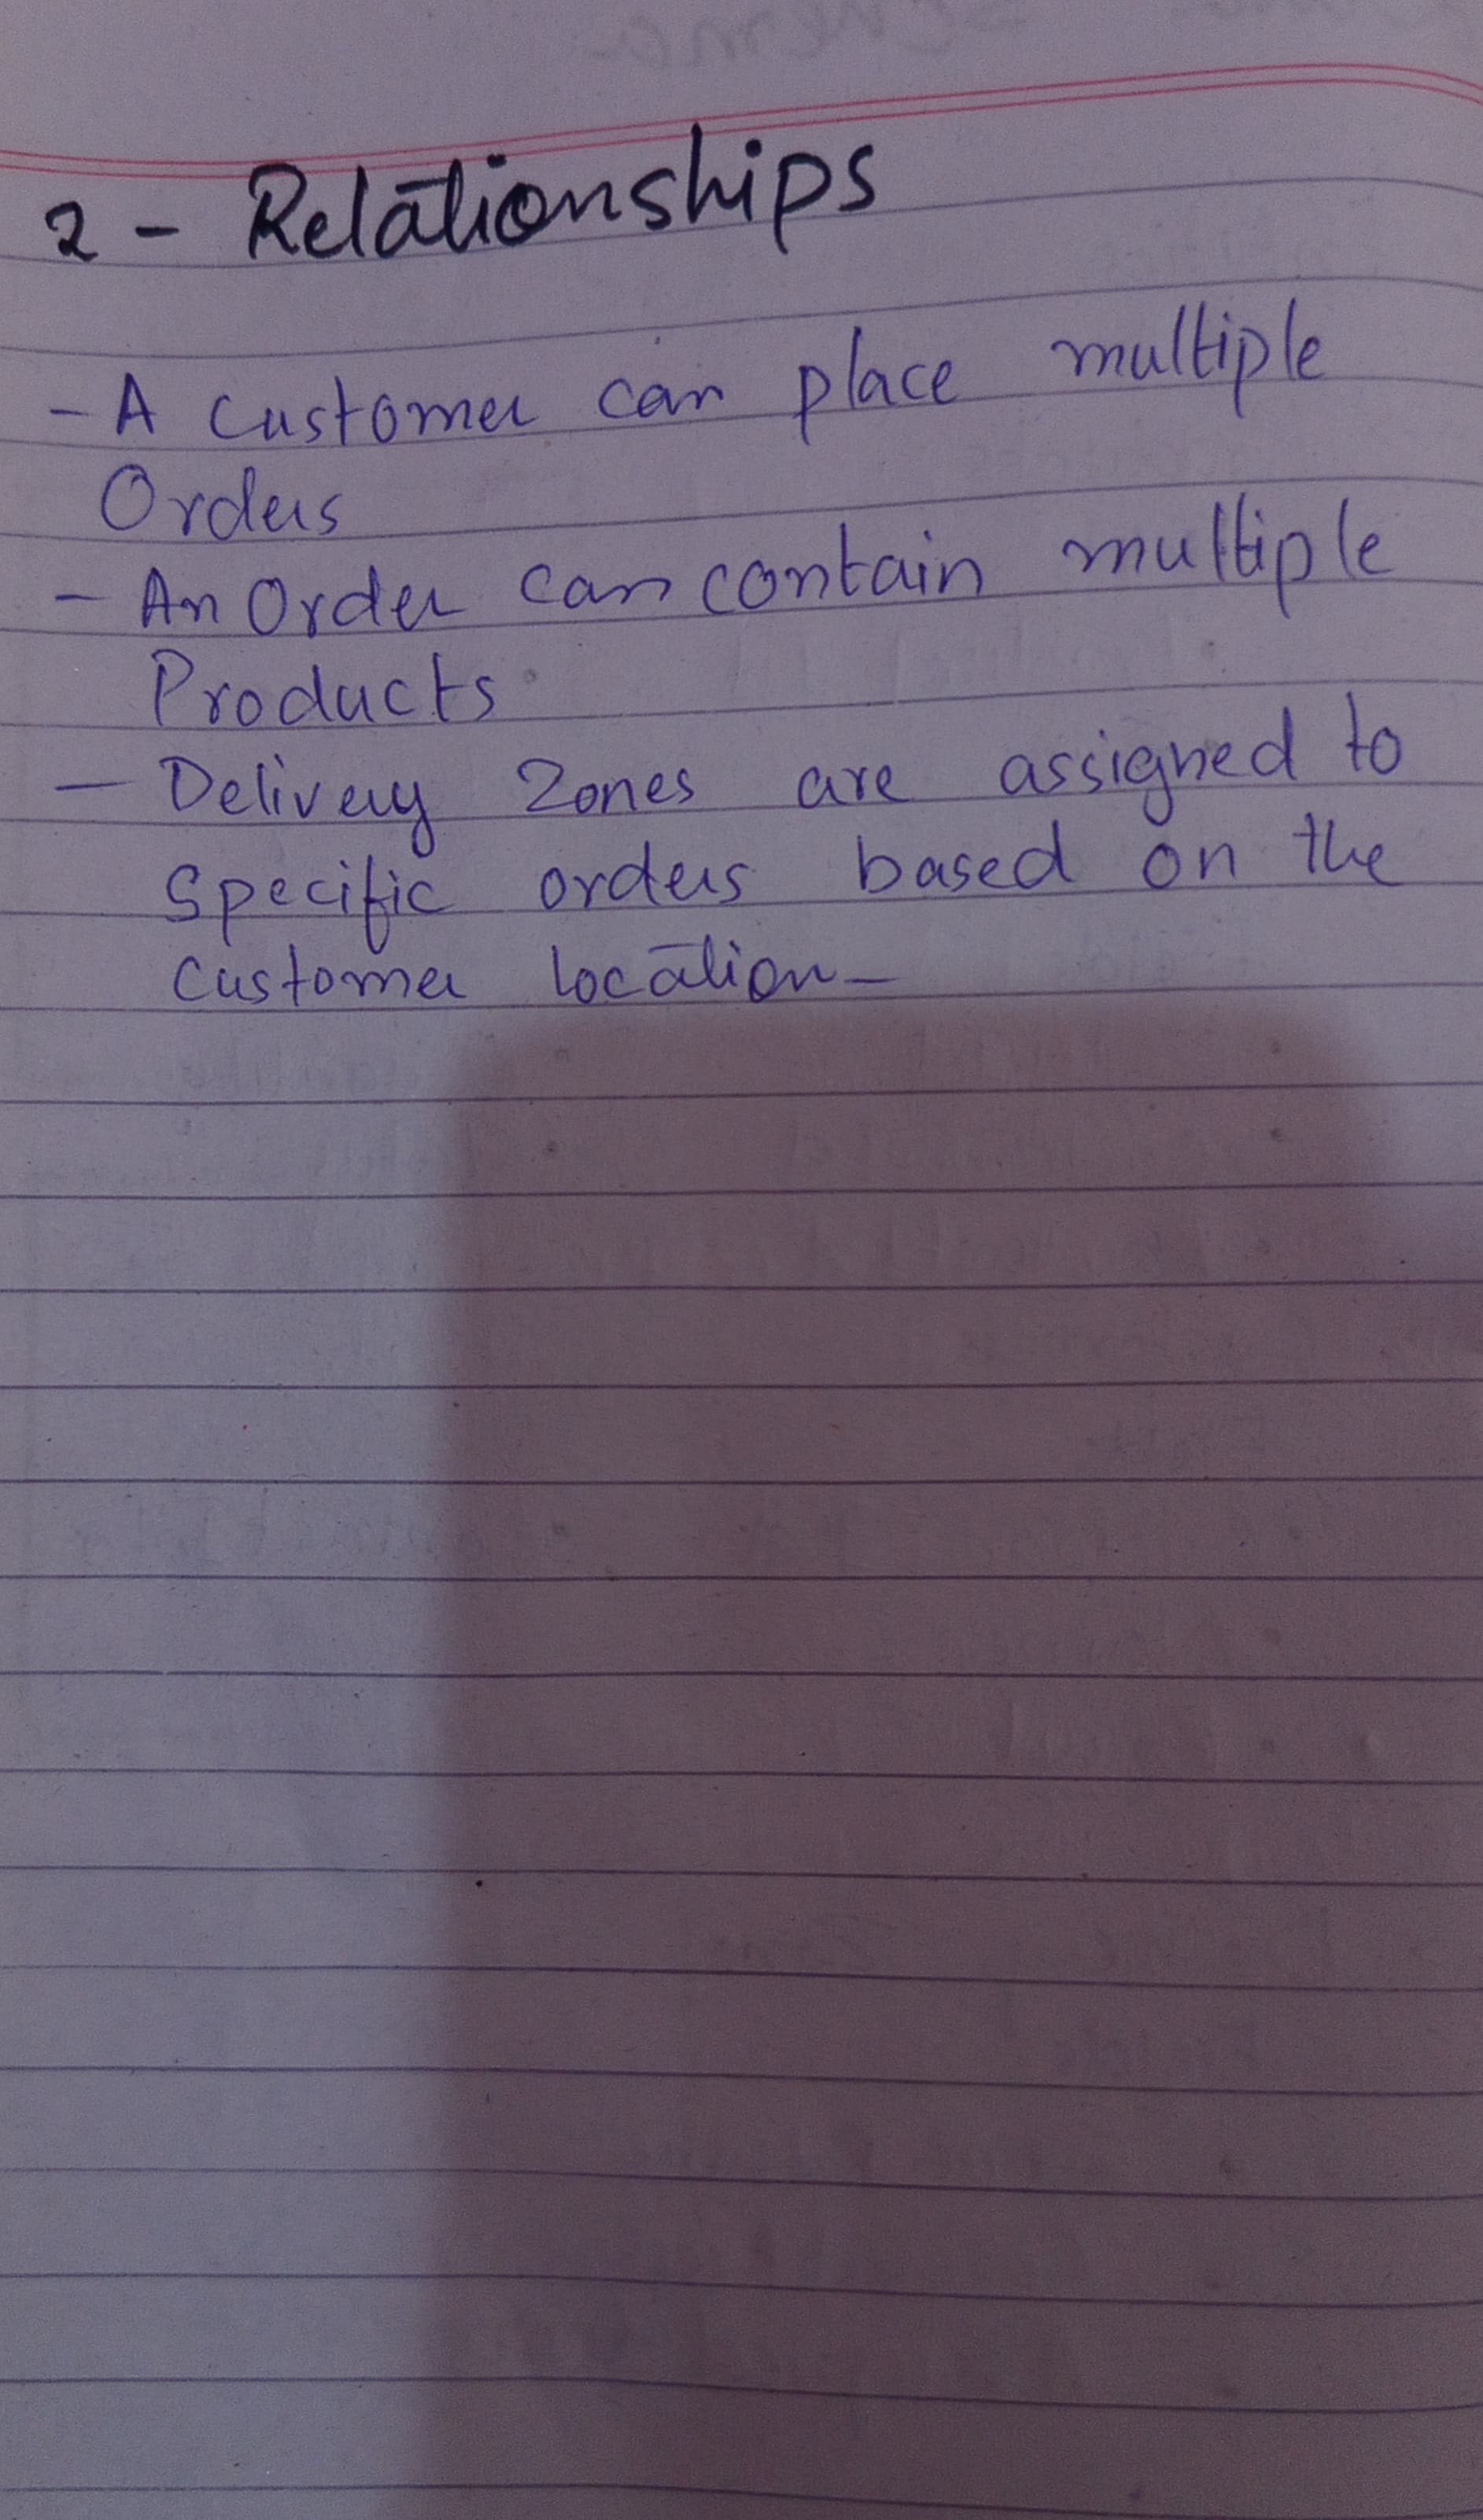 2 - Relationships
- A Customer can place multiple
Orders
- An Order can contain multiple
Products
- Delivery Zones are assigned to
Specific orders based on the
Customer location -